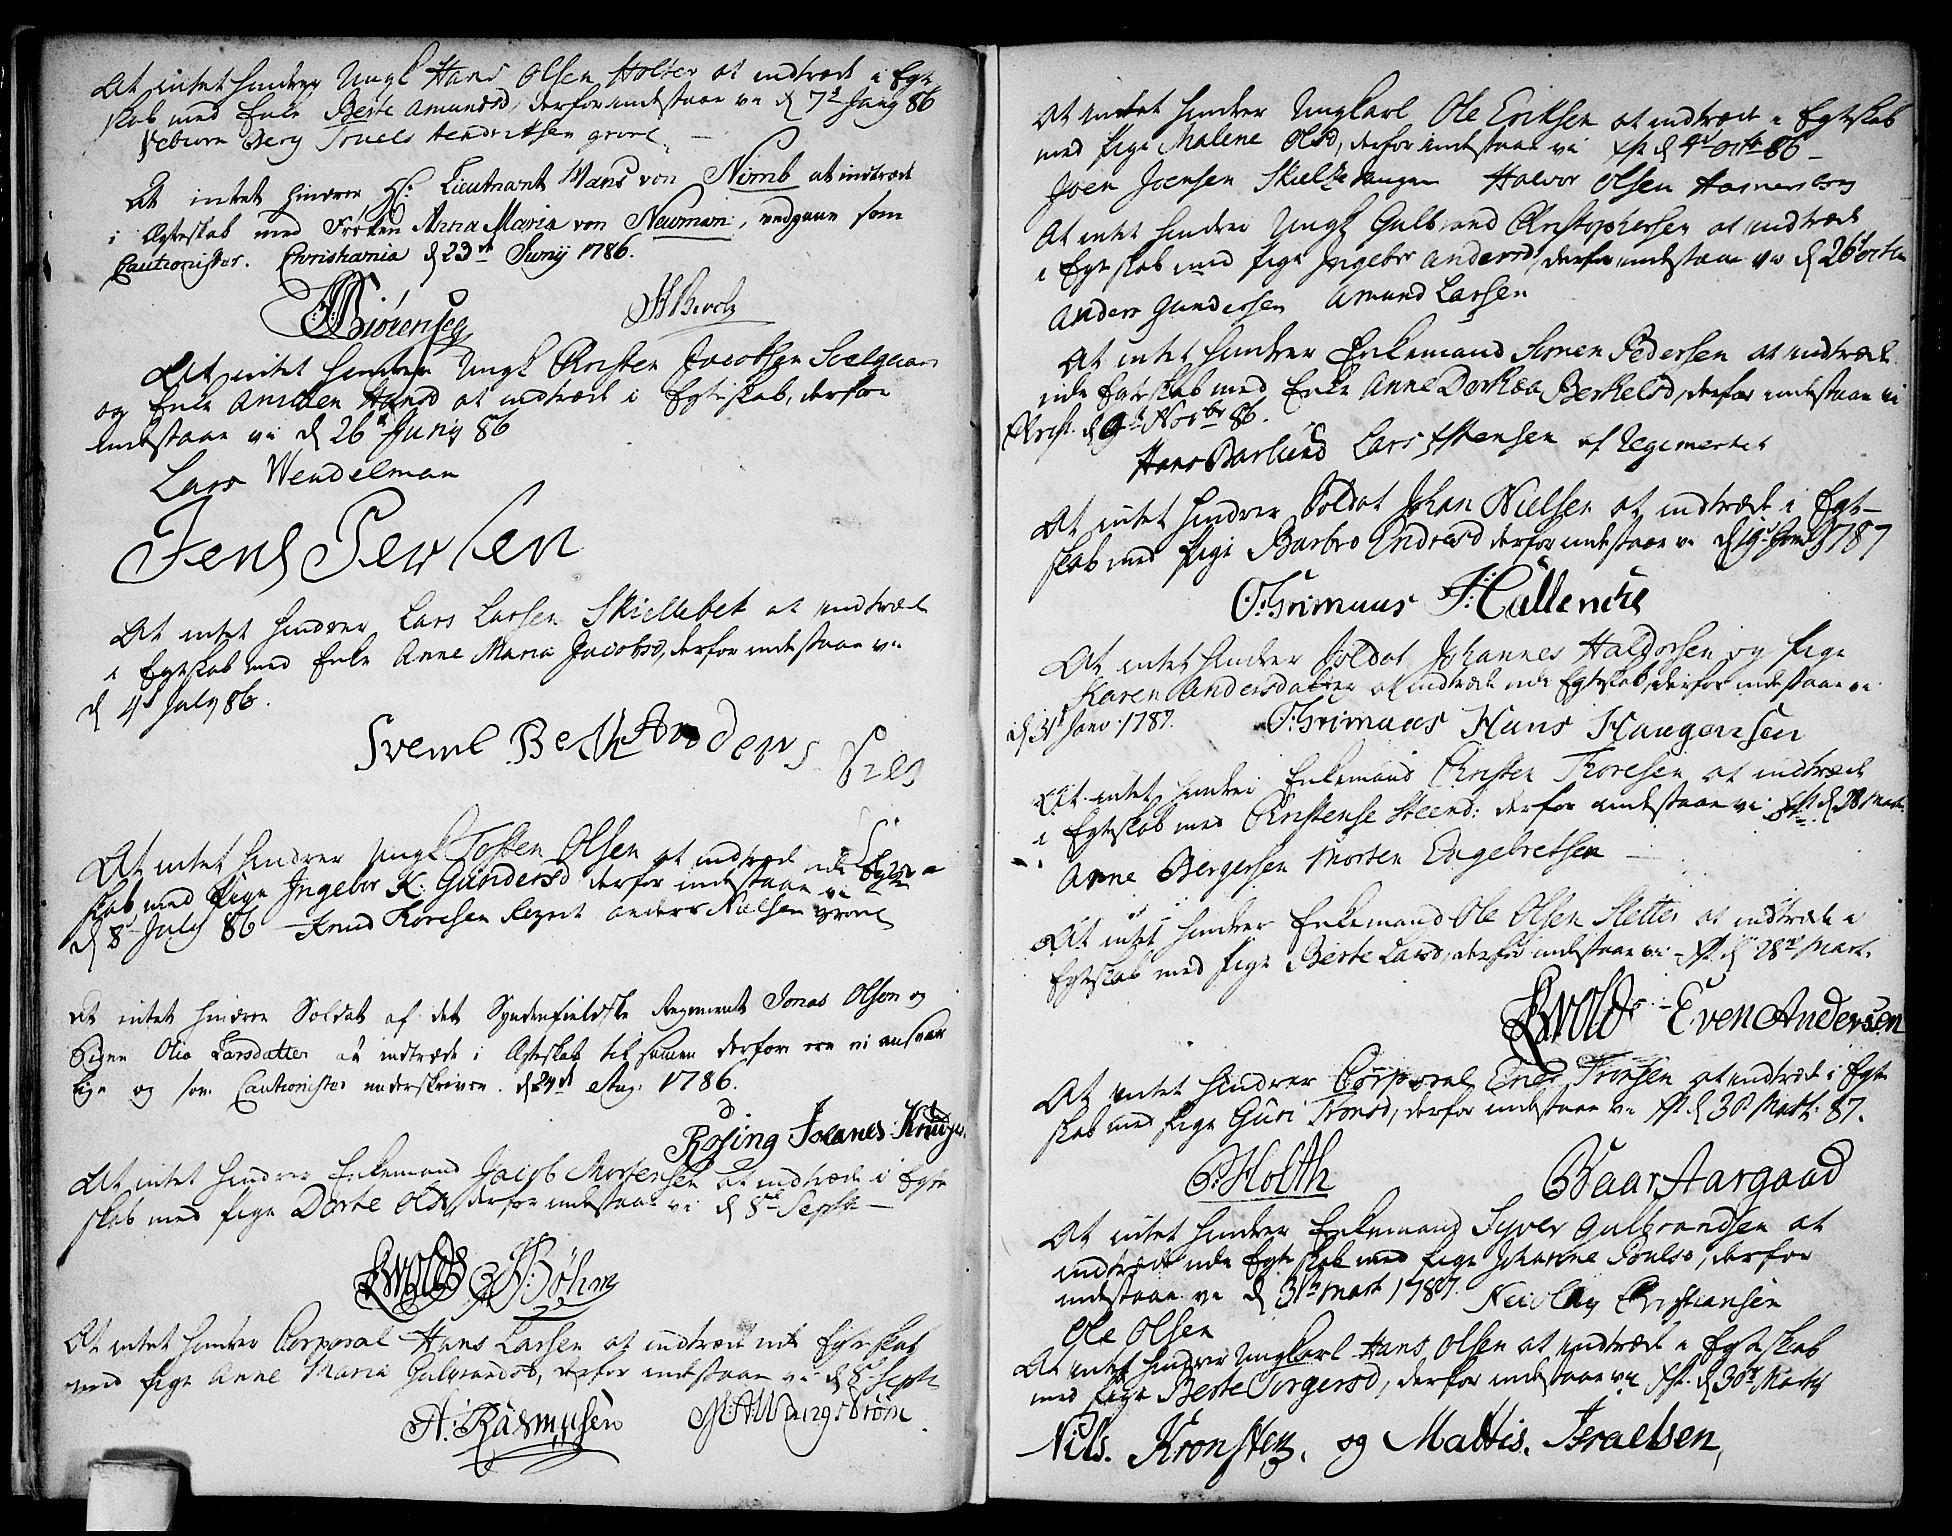 At intet hindrer Ungk Hans Olsen Holter at indtræde i Egte
skab med Enke Berte Amundsd, derfor indestaae vi d 7de Janij 86
Berg Truels Hendriksen
At intet hindrer Hr: Lieutnant Hans von Nimb at indtræde
i Ægteskab med Frøken Anna Maria von Neuman, vedgaae som
Cautionister. Christiania d 23de Junij 1786.
At intet hindrer Ungk Christen Jacobsen
og Enke Hansd at indtræde i Egteskab, derfore
indestaae vi d 26de Junij 86
Lars Wendelman
Jens Persen
At intet hindrer Lars Larsen Skiellebek at indtræde
i Egteskab med Enke Anne Maria Jacobsd, derfor indestaae vi
d 4de July 86.
At intet hindrer Ungk Tosten Olsen at indtræde udi Egte
skab, med Pige Ingebor K: Gundersd derfor indestaae vi
d 8de July 86 Knud Toresen Anders Nielsen
At intet hindrer Soldat af det Syndenfieldske Regiment Jonas Olsen og
Pigen Olia Larsdatter at indtræde i Ægteskab til samen derfore ere vi ansvar
lige og som Cautionister underskriver. d 24de Aug: 1786.
Rosing Joanes Krüger.
At intet hindrer Enkemand Jacob Mortensen at indtræde i Egte
skab med Pige Dorte Olsd, derfor indestaae vi d 8de Septbr
Böhme
At intet hindrer Corporal Hans Larsen at indtræde udi Egteskab
med Pige Anne Maria Gulbrandsd, derfor indestaae vi d 8de Septbr
A: Rasmusen
At intet hindrer Ungkarl Ole Eriksen at indtræde i Egteskab
med Pige Malene Olsd, derfor indestaae vi Xst d 4de Octbr 86
Joen Joensen Halvor Olsen
At intet hindrer Ungk Gulbrand Christophersen at indtræde
i Egteskab med Pige Ingebor Andersd, derfor indestaae vi d 26de Octbr
Anders Gundersen Amund Larsen
At intet hindrer Enkemand Simen Pedersen at indtræde
udi Egteskab med Enke Anne Dorthea Berthelsd, derfor indestaae vi
Christ. d 9de Novbr 86.
Hans Barlund Lars Estensen af Regimentet
At intet hindrer Soldat Johan Nielsen at indtræde i Egt-
skab med Pige Barbro Endresd derfor indestaae vi d 19de Janv 1787
O: Grimaas
At intet hindrer Soldat Johannes Halvorsen og Pige
Karen Andersdatter at indtræde udi Egteskab, derfor indestaae vi
d 31de Janv: 1787. O: Grimaas Hans Haagensen
At intet hindrer Enkemand Christen Thoresen at indtræde
i Egteskab med Christense Steend: derfor indestaae vi Xst d 28 Marti
Arne Bergersen Morten Engebretsen
At intet hindrer Enkemand Ole Olsen Sletter at indtræde i
Egteskab med Pige Berte Larsd, derfor indestaae vi Xst d 28de Mart.
Even Andersen
At intet hindrer Corporal Tronsen at indtræde i Egte
skab med Pige Guri Tronsd, derfor indestaae vi Xst d 30 Mart: 87.
Holth Baar Aargaad
At intet hindrer Enkemand Syver Gulbrandsen at
indtræde udi Egteskab med Pige Johanne Poulsd, derfor
indestaae vi d 31te Mart 1787. Nicolay Christiansen
Ole Olsen
At intet hindrer Ungkarl Hans Olsen at indtræde i Egteskab
med Pige Berte Torgersd, derfor indestaae vi Xst. d 30te Martij
Nils. Kronsten. og Mattis. Israelsen,